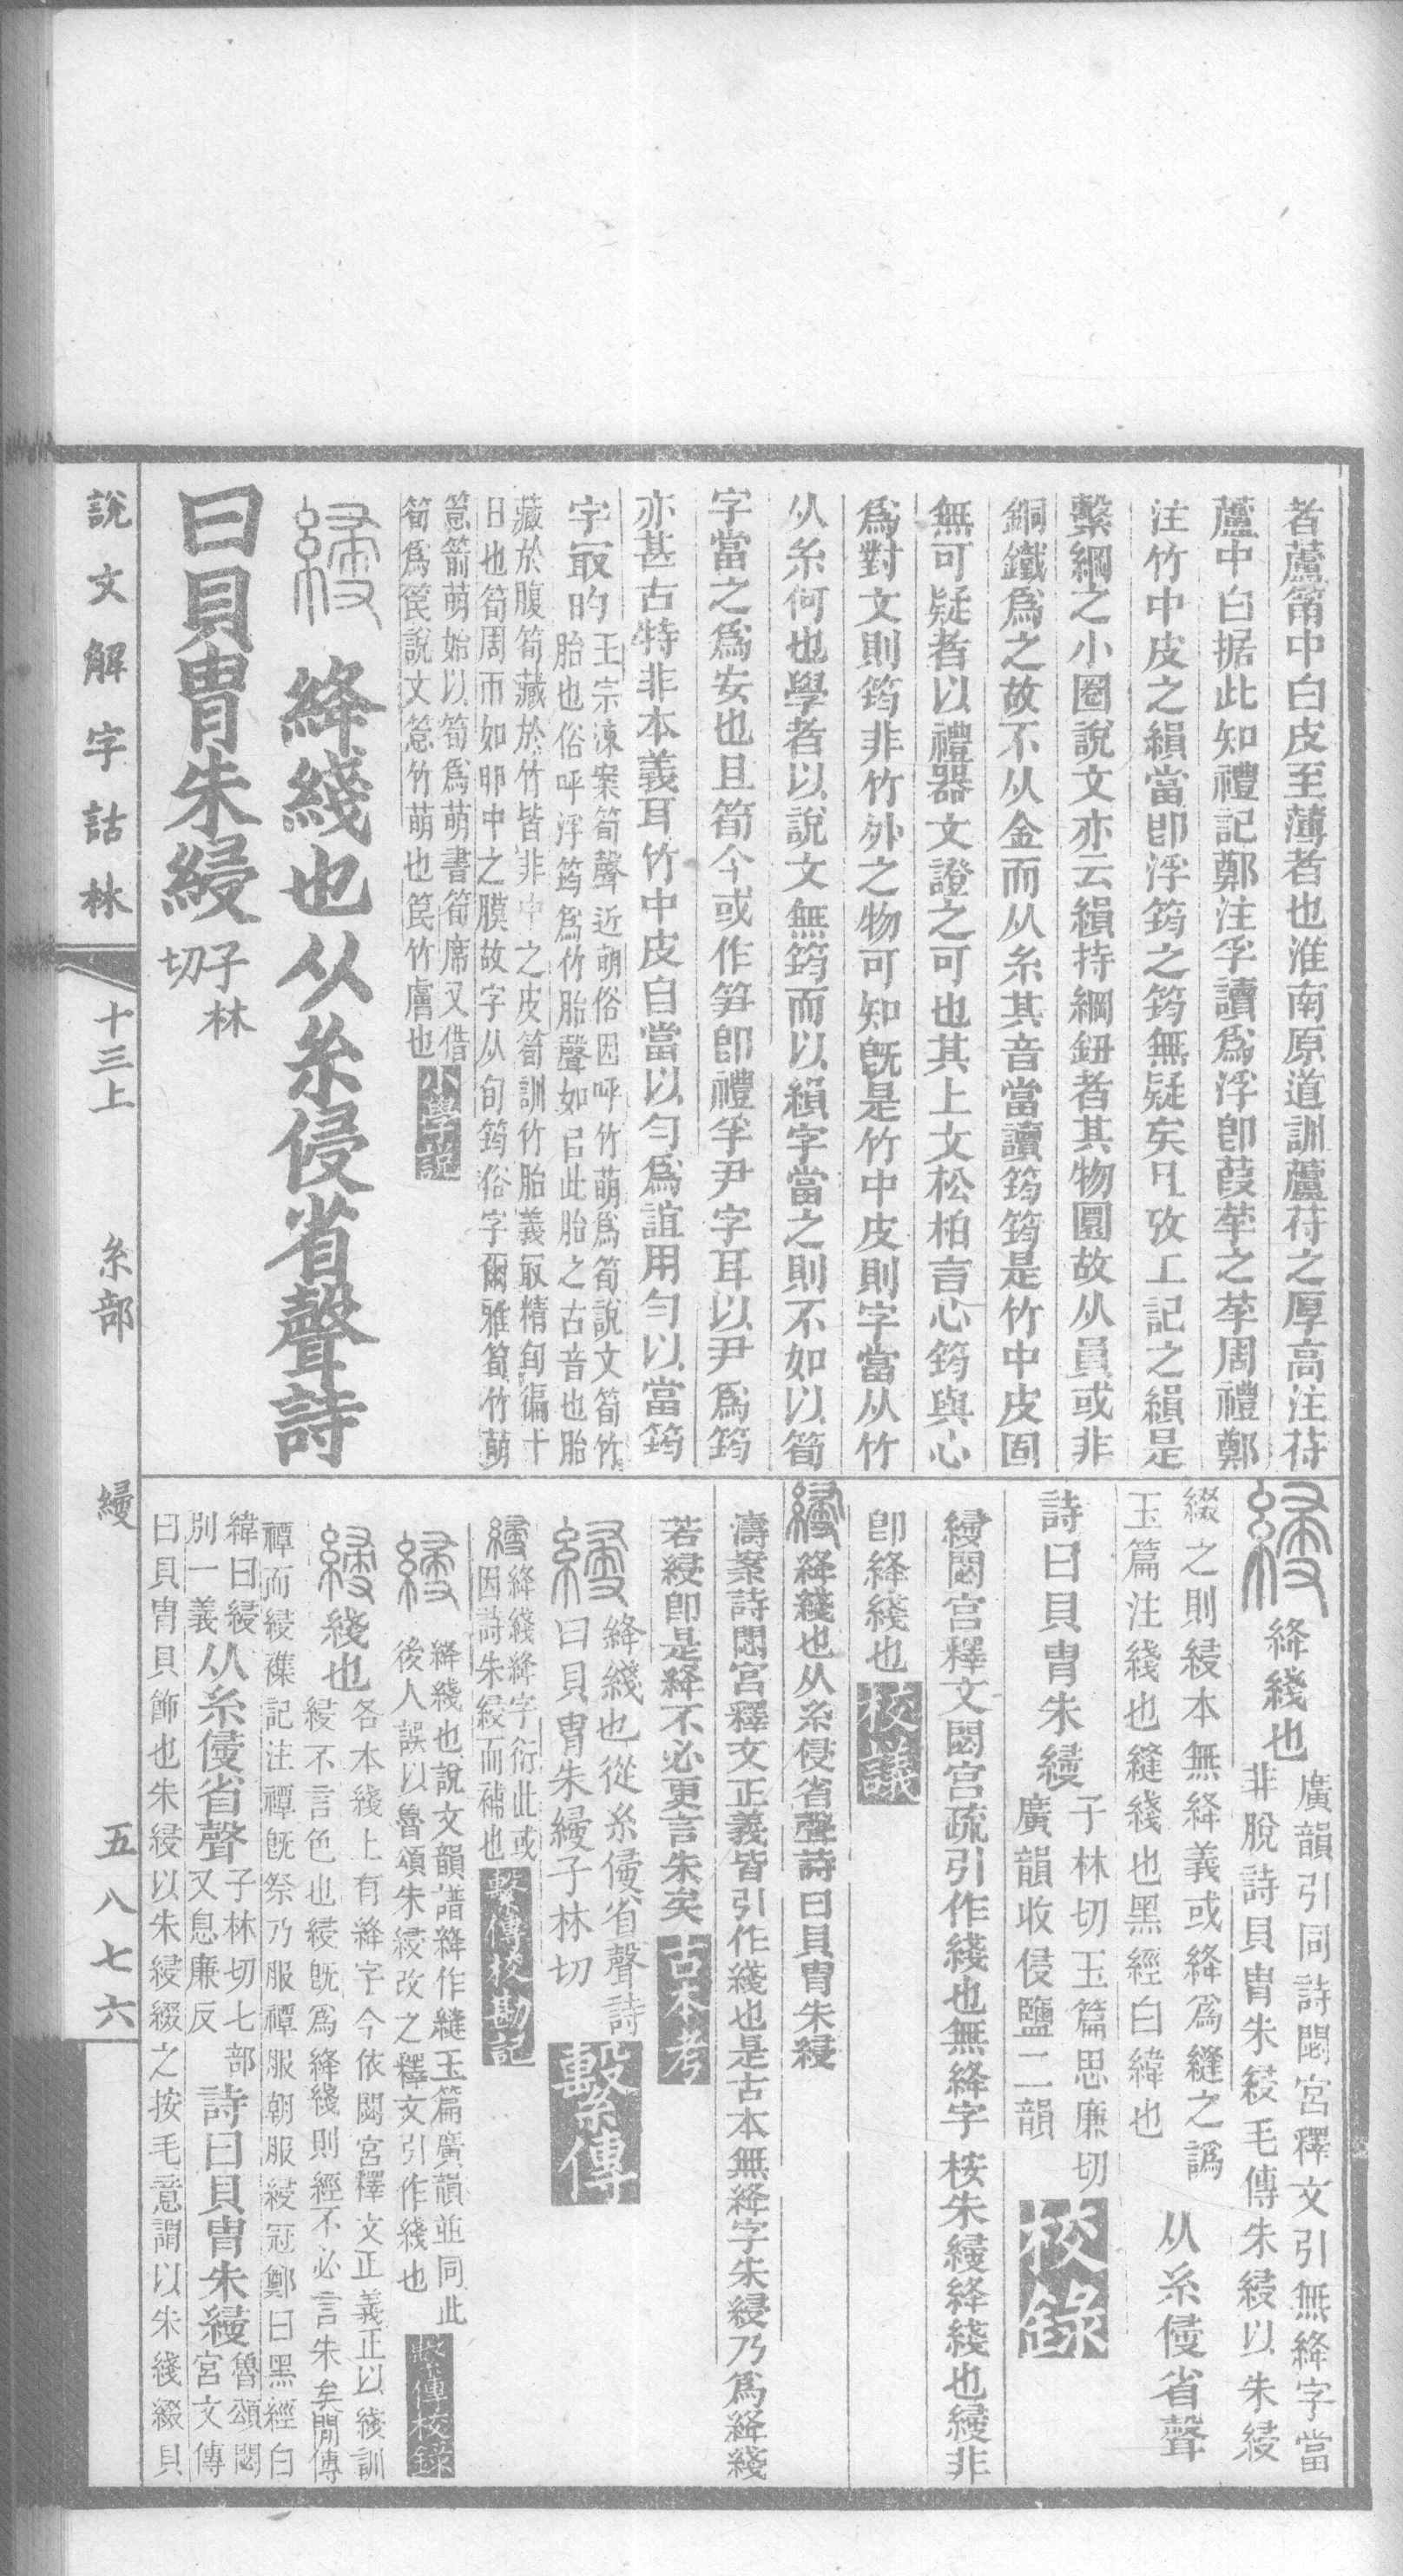 者蘆笛中白皮至薄者也淮南原道訓蘆苻之厚高注苻
蘆中白据此知禮記鄭注孚讀爲浮卽葭莩之莩周禮鄭
注竹中皮之縜當卽浮筠之筠無疑矣凡攷工記之縜是
繫綱之小圈說文亦云縜持綱鈕者其物圜故从員或非
銅鐵爲之故不从金而从糸其音當讀筠筠是竹中皮固
無可疑者以禮器文證之可也其上文松柏言心筠與心
爲對文則筠非竹外之物可知旣是竹中皮則字當从竹
从糸何也學者以說文無筠而以縜字當之則不如以筍
字當之爲安也且筍今或作笋卽禮孚尹字耳以尹爲筠
亦甚古特非本義耳竹中皮自當以勻爲誼用勻以當筠
字冣旳
王宗涑案筍聲近萌俗因呼竹萌爲筍說文筍竹
胎也俗呼浮筠爲竹胎聲如㠯此胎之古音也胎
藏於腹筍藏於竹皆非中之皮筍訓竹胎義冣精旬徧十
日也筍周帀如卵中之膜故字从旬筠俗字爾雅筍竹萌
箈箭萌始以筍爲萌書筍席又借
筍爲笢說文箈竹萌也笢竹膚也
小學說
綅 絳綫也从糸侵省聲詩
曰貝胄朱綅
子林
切
說文解字詁林 十三上 糸部 綅 五八七六
綅 絳綫也
廣韻引同詩閟宮釋文引無絳字當
非脫詩貝胄朱綅毛傳朱綅以朱綅
綴之則綅本無絳義或絳爲縫之譌
玉篇注綫也縫綫也黑經白緯也
从糸侵省聲
詩曰貝胄朱綅
子林切玉篇思廉切
廣韻收侵鹽二韻
校錄
綅閟宮釋文閟宮疏引作綫也無絳字 桉朱綅絳綫也綅非
卽絳綫也
校議
綅 絳綫也从糸侵省聲詩曰貝胄朱綅
濤案詩閟宮釋文正義皆引作綫也是古本無絳字朱綅乃爲絳綫
若綅卽是絳不必更言朱矣
古本考
綅
絳綫也從糸侵省聲詩
曰貝胄朱綅子林切
繫傳
綅
絳綫絳字衍此或
因詩朱綅而補也
繫傳校勘記
綅
絳綫也說文韻譜絳作縫玉篇廣韻並同此
後人誤以魯頌朱綅改之釋文引作綫也
繫傳校錄
綅 綫也
各本綫上有絳字今依閟宮釋文正義正以綫訓
綅不言色也綅旣爲絳綫則經不必言朱矣閒傳
禫而綅襍記注禫旣祭乃服禫服朝服綅冠鄭曰黑經白
緯曰綅
別一義
从糸侵省聲
子林切七部
又息廉反
詩曰貝胄朱綅
魯頌閟
宮文傳
曰貝胄貝飾也朱綅以朱綅綴之按毛意謂以朱綫綴貝